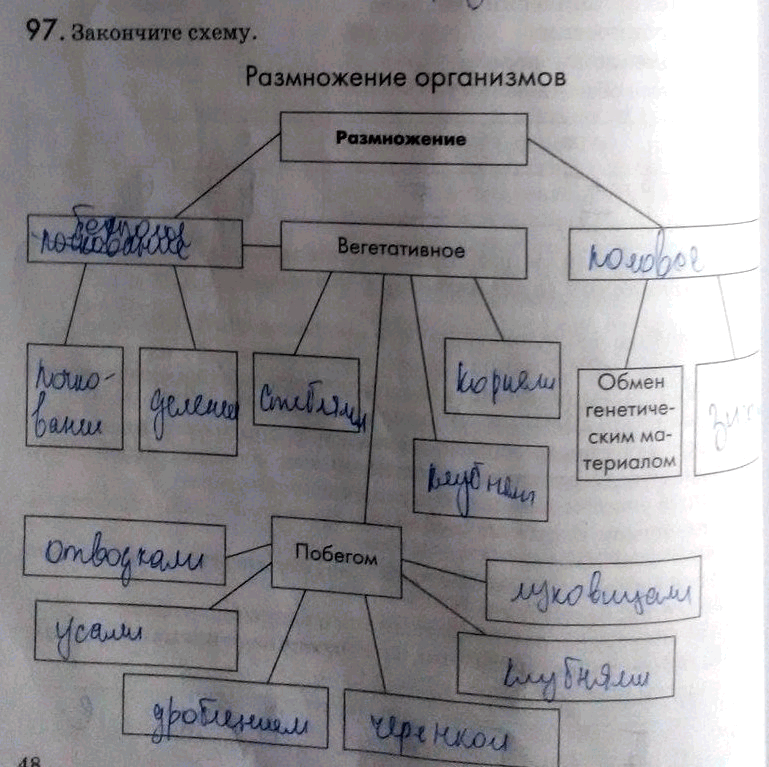 97. Закончите схему.
Размножение организмов
Размножение
Вегетативное
половое
почко-
вание
деление
стеблями
корнями
Обмен
генетиче-
ским ма-
териалом
клубнями
отводками
Побегом
луковицами
усами
клубнями
дроблением
черенком
48